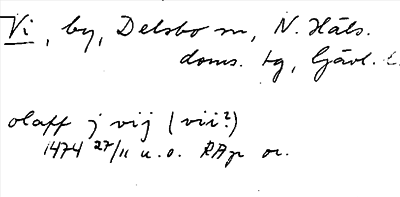 Vi, by, Delsbo sn, N. Häls.
doms. tg, Gävl. L.
olaff j vij (vii?)
1474 27/11 u.o. RAp or.